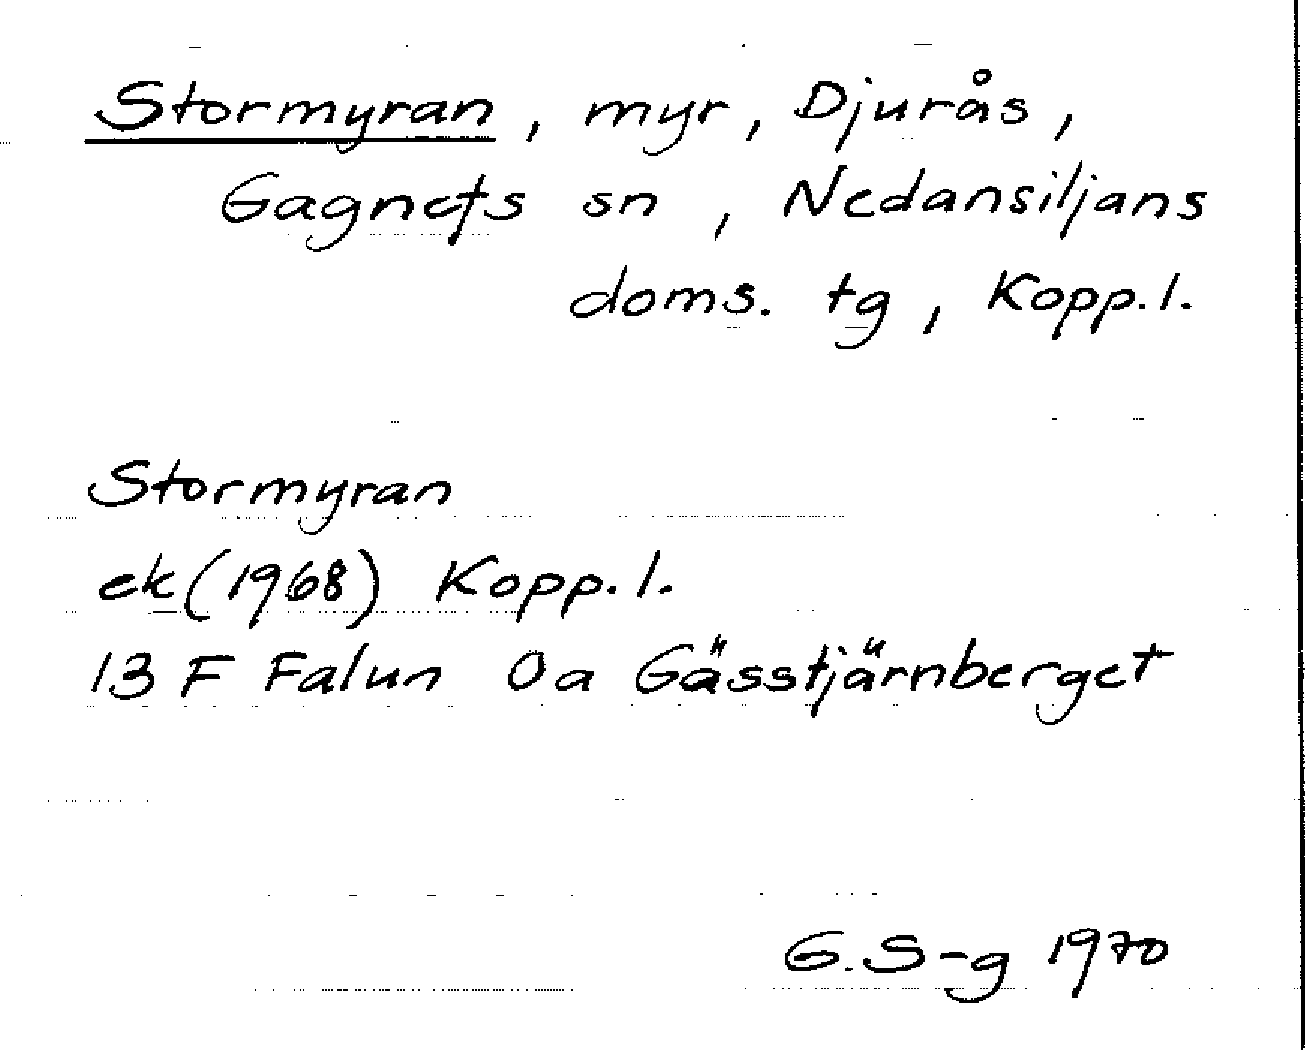 Stormyran, myr, Djurås,
Gagnefs sn, Nedansiljans
doms. tg, Kopp. l.
Stormyran
ek (1968) Kopp. l.
13 F Falun 0a Gässtjärnberget
G. S-g 1970